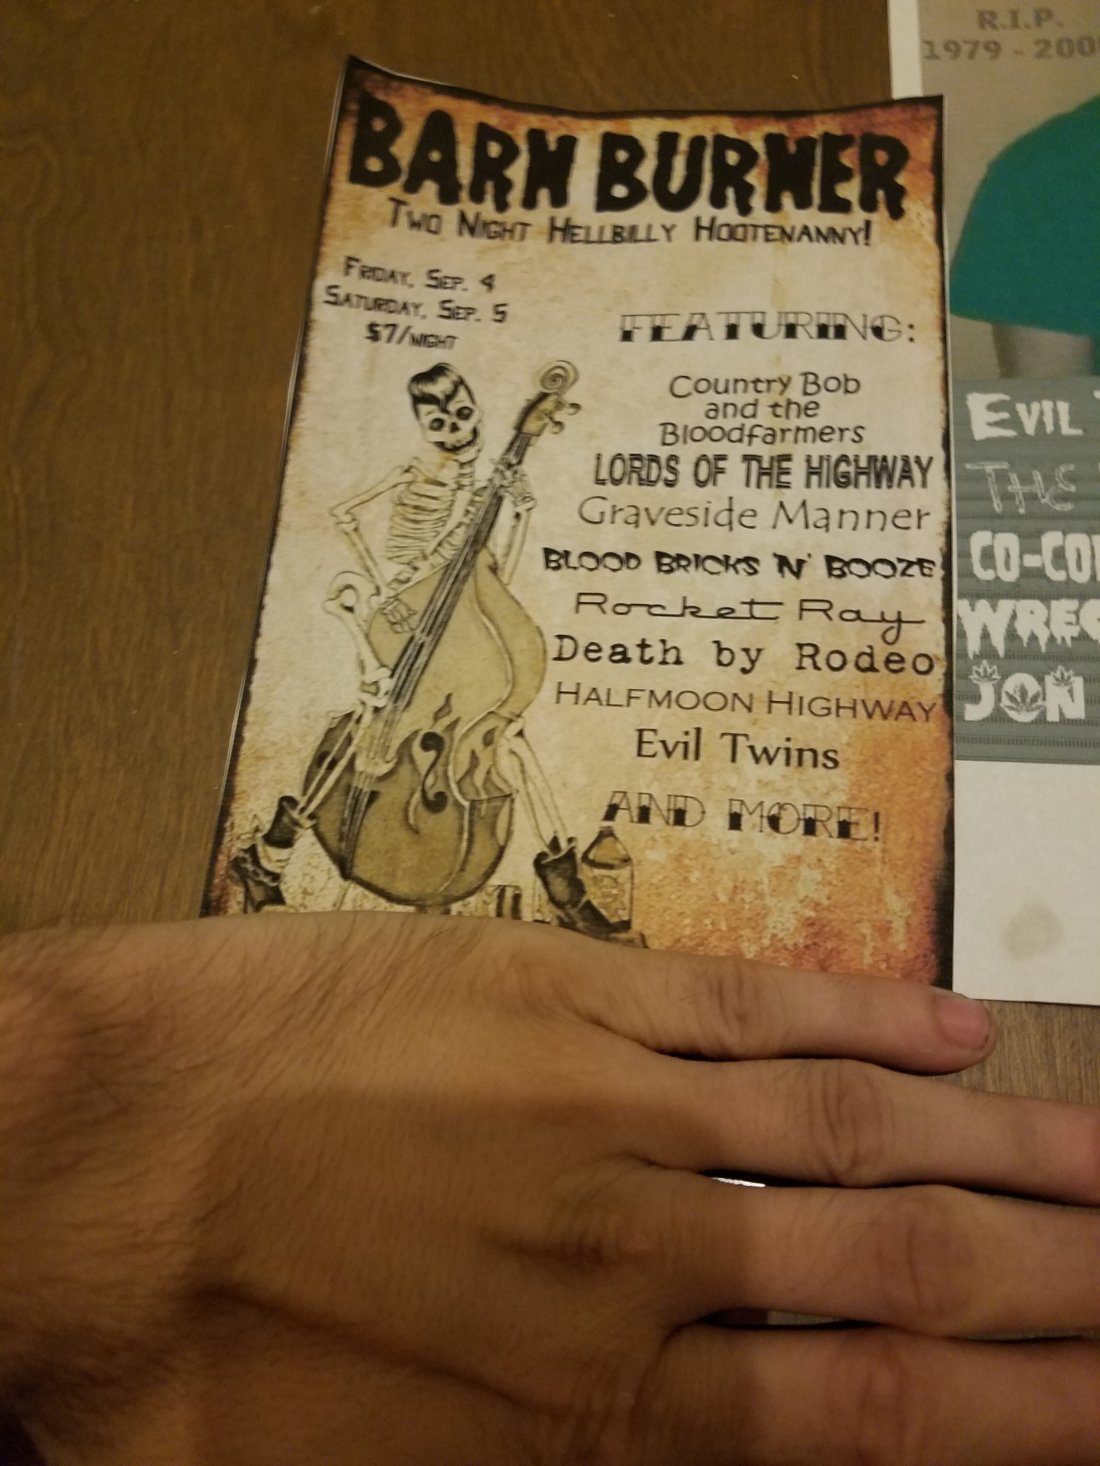 BARN BURNER
Two Night Hellbilly Hootenanny!
Friday, Sep. 4
Saturday, Sep. 5
$7/night
FEATURING:
Country Bob
and the
Bloodfarmers
LORDS OF THE HIGHWAY
Graveside Manner
BLOOD BRICKS 'N' BOOZE
Rocket Ray
Death by Rodeo
HALFMOON HIGHWAY
Evil Twins
AND MORE!
R.I.P.
1979 - 200
EVIL
THE
CO-CO
WREC
JON